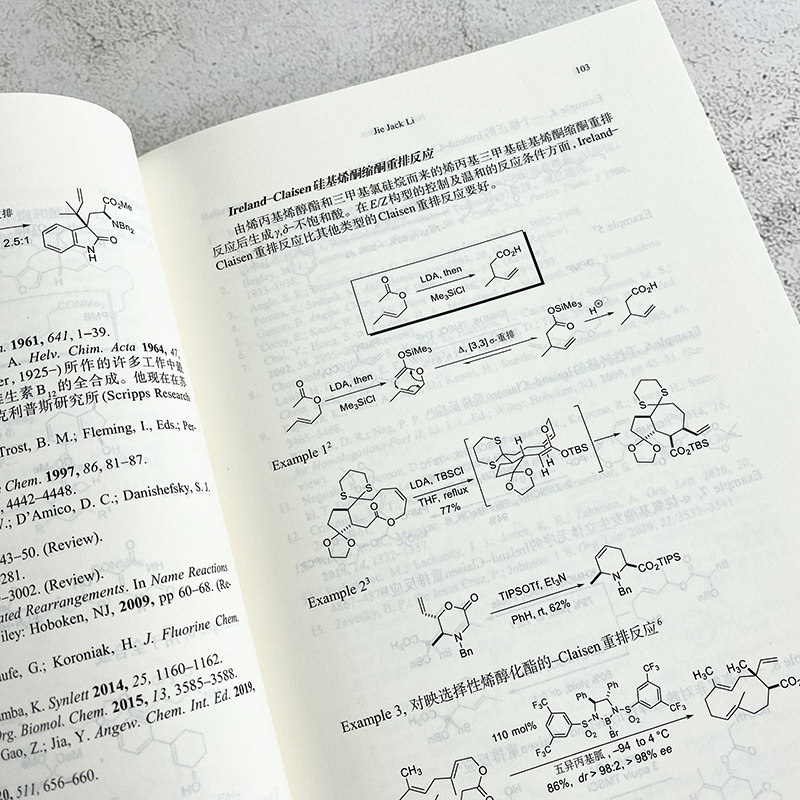 CO₂Me
NBn₂
排
2.5:1
N
H
O
n. 1961, 641, 1–39.
A. Helv. Chim. Acta 1964, 47,
er, 1925–)所作的许多工作中
生素B₁₂的全合成。他现在在
克利普斯研究所(Scripps Research
Trost, B. M.; Fleming, I., Eds.; Per-
Chem. 1997, 86, 81–87.
4442–4448.
D'Amico, D. C.; Danishefsky, S. J.
43–50. (Review).
281.
–3002. (Review).
ated Rearrangements. In Name Reactions
iley: Hoboken, NJ, 2009, pp 60–68. (Re-
aufe, G.; Koroniak, H. J. Fluorine Chem.
mba, K. Synlett 2014, 25, 1160–1162.
Org. Biomol. Chem. 2015, 13, 3585–3588.
Gao, Z.; Jia, Y. Angew. Chem. Int. Ed. 2019,
20, 511, 656–660.
103
Jie Jack Li
Ireland–Claisen硅基烯酮缩酮重排反应
由烯丙基烯醇酯和三甲基氯硅烷而来的烯丙基三甲基硅基烯酮缩酮重排
反应后生成γ,δ–不饱和酸。在E/Z构型的控制及温和的反应条件方面,Ireland–
Claisen重排反应比其他类型的Claisen重排反应要好。
O
O
LDA, then
Me₃SiCl
CO₂H
O
O
LDA, then
Me₃SiCl
OSiMe₃
Δ, [3,3] σ-重排
OSiMe₃
O
H⊕
CO₂H
Example 1²
S S
O O
O O
LDA, TBSCl
THF, reflux
77%
S S
H
O
OTBS
H
H
O O
S S
O O
CO₂TBS
Example 2³
O
O
N
Bn
TIPSOTf, Et₃N
PhH, rt, 62%
N
Bn
CO₂TIPS
Example 3, 对映选择性烯醇化酯的–Claisen重排反应⁶
110 mol%
F₃C
CF₃
Ph Ph
S–N N–S
O₂ B O₂
Br
CF₃
CF₃
五异丙基胍, –94 to 4 °C
86%, dr > 98:2, > 98% ee
CH₃
O
H₃C
H₃C